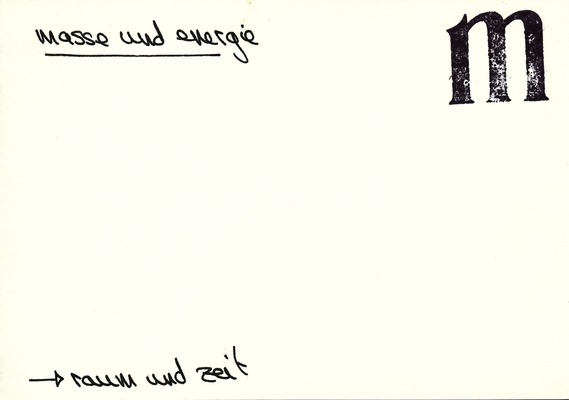 masse und energie
m
→ raum und zeit